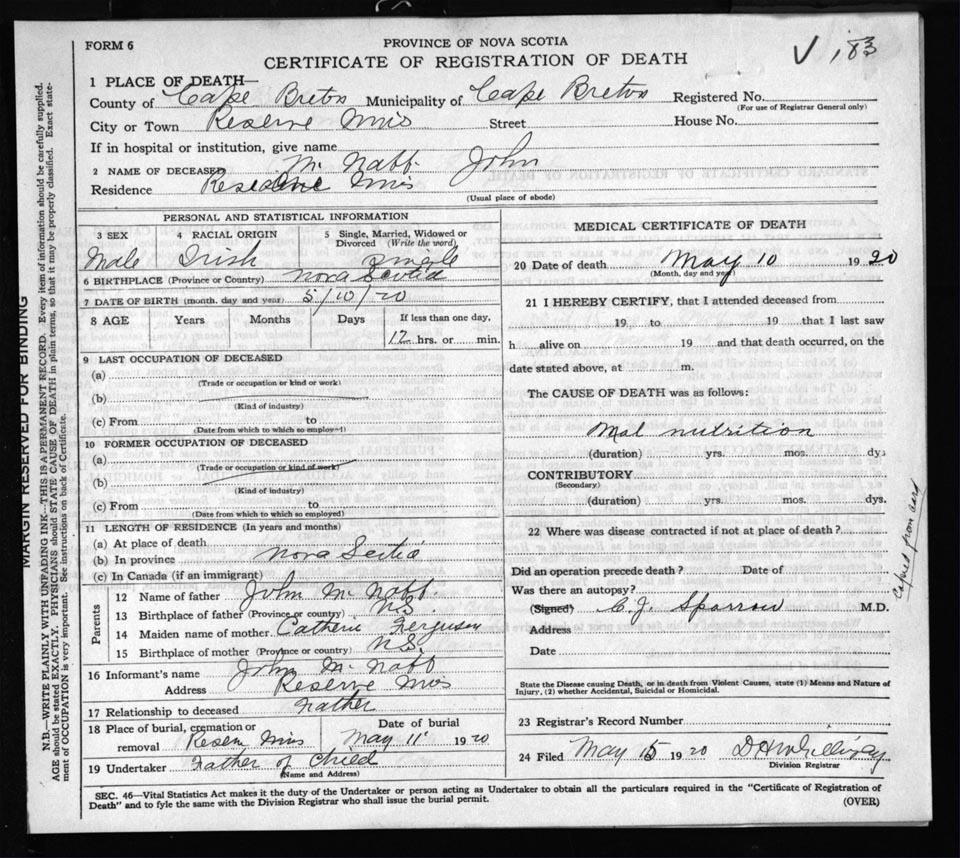 FORM 6
PROVINCE OF NOVA SCOTIA
CERTIFICATE OF REGISTRATION OF DEATH
√ 183
1 PLACE OF DEATH—
County of Cape Breton Municipality of Cape Breton Registered No.
(For use of Registrar General only)
City or Town Reserve Mines Street House No.
If in hospital or institution, give name
2 NAME OF DECEASED Mc Nabb John
Residence Reserve Mines
(Usual place of abode)
PERSONAL AND STATISTICAL INFORMATION
3 SEX 4 RACIAL ORIGIN 5 Single, Married, Widowed or
Divorced (Write the word)
Male Irish Single
6 BIRTHPLACE (Province or Country) Nova Scotia
7 DATE OF BIRTH (month, day and year) 5/10/20
8 AGE Years Months Days If less than one day,
12 hrs. or min.
9 LAST OCCUPATION OF DECEASED
(a)
(Trade or occupation or kind or work)
(b)
(Kind of industry)
(c) From to
(Date from which to which so employed)
10 FORMER OCCUPATION OF DECEASED
(a)
(Trade or occupation or kind of work)
(b)
(Kind of industry)
(c) From to
(Date from which to which so employed)
11 LENGTH OF RESIDENCE (In years and months)
(a) At place of death
(b) In province Nova Scotia
(c) In Canada (if an immigrant)
Parents
12 Name of father John Mc Nabb
13 Birthplace of father (Province or country) N.S.
14 Maiden name of mother Catherie Ferguson
15 Birthplace of mother (Province or country) N.S.
16 Informant's name John Mc Nabb
Address Reserve Mines
17 Relationship to deceased Father
18 Place of burial, cremation or
removal Reserve Mines
Date of burial
May 11 1920
19 Undertaker Father of Child
(Name and Address)
MEDICAL CERTIFICATE OF DEATH
20 Date of death May 10 1920
(Month, day and year)
21 I HEREBY CERTIFY, that I attended deceased from
19 to 19 that I last saw
h alive on 19 and that death occurred, on the
date stated above, at m.
The CAUSE OF DEATH was as follows:
Mal nutrition
(duration) yrs. mos. dys
CONTRIBUTORY
(Secondary)
(duration) yrs. mos. dys.
22 Where was disease contracted if not at place of death?
Did an operation precede death? Date of
Was there an autopsy?
(Signed) C.J. Sparrow M.D.
Address
Date
State the Disease causing Death, or in death from Violent Causes, state (1) Means and Nature of
Injury, (2) whether Accidental, Suicidal or Homicidal.
23 Registrar's Record Number
24 Filed May 15 1920
Division Registrar
Copied from card
SEC. 46—Vital Statistics Act makes it the duty of the Undertaker or person acting as Undertaker to obtain all the particulars required in the "Certificate of Registration of
Death" and to fyle the same with the Division Registrar who shall issue the burial permit.
(OVER)
MARGIN RESERVED FOR BINDING
N.B.—WRITE PLAINLY WITH UNFADING INK—THIS IS A PERMANENT RECORD. Every item of information should be carefully supplied.
AGE should be stated EXACTLY. PHYSICIANS should STATE CAUSE OF DEATH in plain terms, so that it may be properly classified. Exact state-
ment of OCCUPATION is very important. See instructions on back of Certificate.